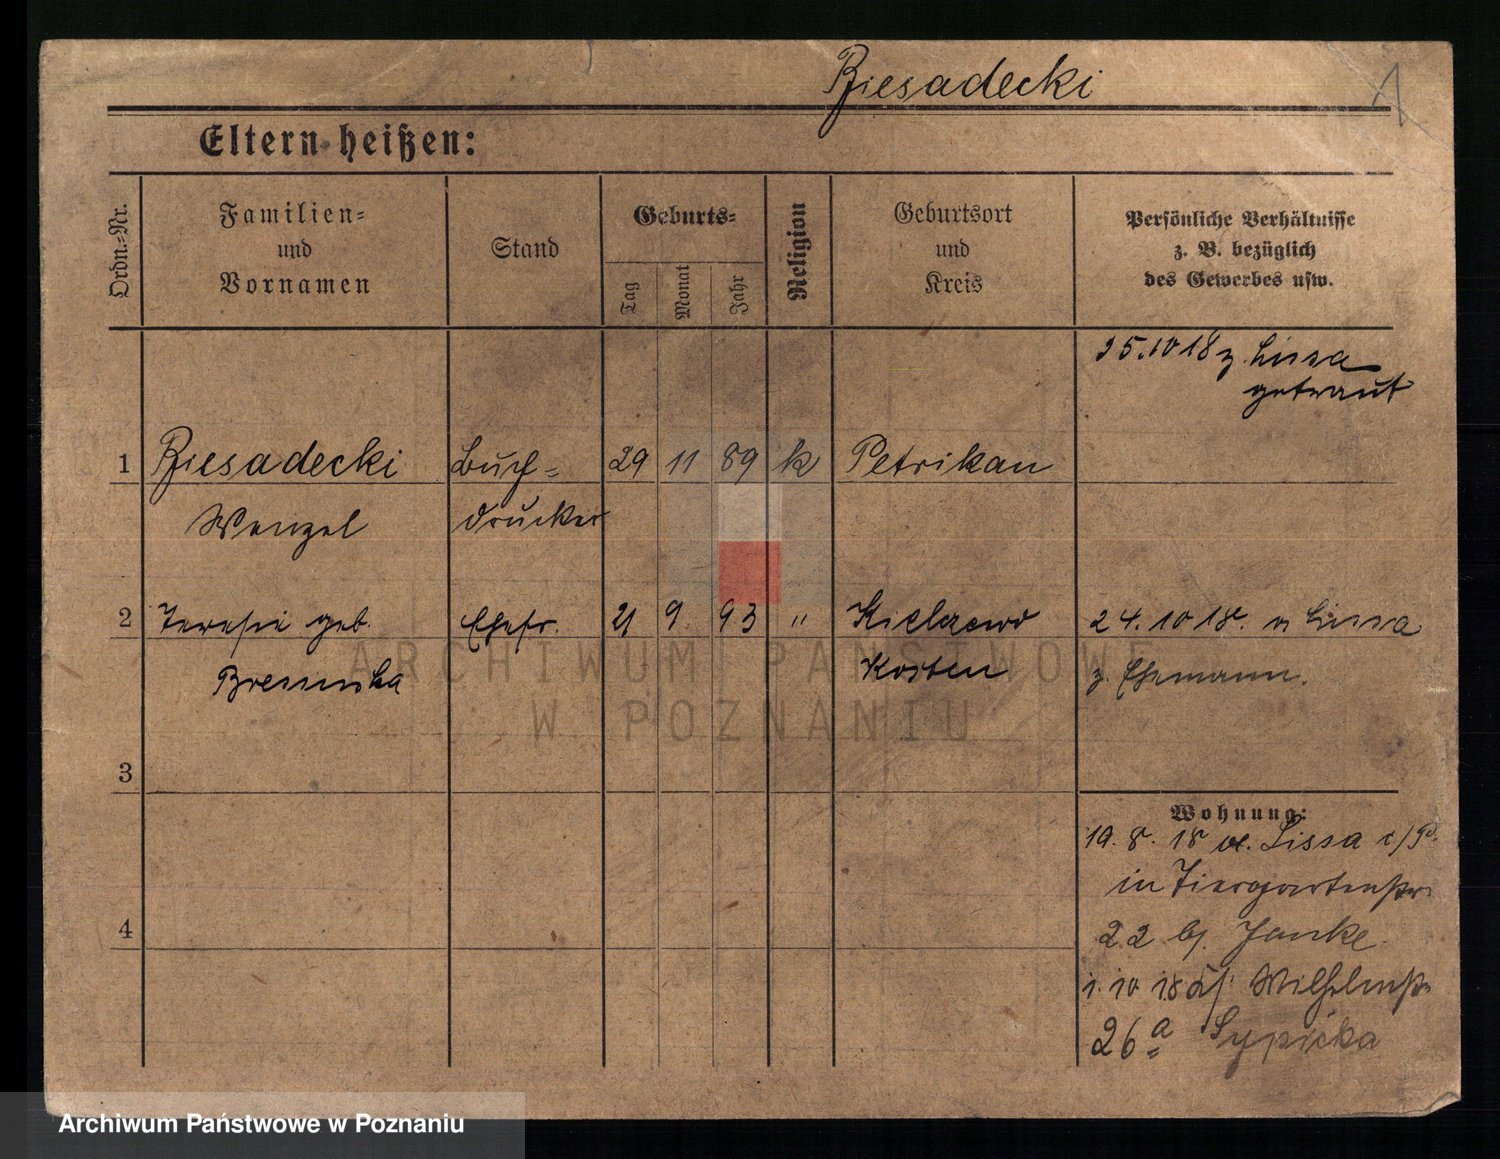 Biesadecki
1
Eltern heißen:
Ordn.=Nr.
Familien=
und
Vornamen
Stand
Geburts=
Tag
Monat
Jahr
Religion
Geburtsort
und
Kreis
Persönliche Verhältnisse
z. B. bezüglich
des Gewerbes usw.
25.10 18 z. Lissa
getraut
1 Biesadecki Buch= 29 11 89 k Petrikau
Wenzel drucker
2 Teresie geb. Ehefr. 21 9 93 " 24. 10 18. v Lissa
Kosten z. Ehemann.
3
Wohnung:
19. 8. 18 v. Lissa i/P.
in Tiergartenstr.
4
22 bj. Janke.
1. 10 18 Wilhelmstr.
26a Sypicka
ARCHIWUM PAŃSTWOWE
W POZNANIU
Archiwum Państwowe w Poznaniu